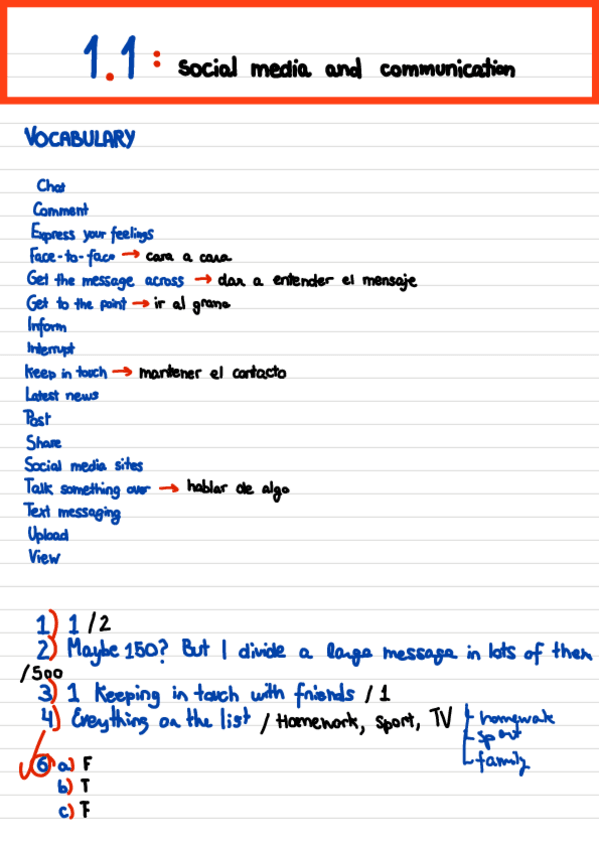 1.1: social media and communication
VOCABULARY
Chat
Comment
Express your feelings
Face-to-face → cara a cara
Get the message across → dar a entender el mensaje
Get to the point → ir al grano
Inform
Interrupt
Keep in touch → mantener el contacto
Latest news
Post
Share
Social media sites
Talk something over → hablar de algo
Text messaging
Upload
View
1) 1 /2
2) Maybe 150? But I divide a large message in lots of them
/500
3) 1 Keeping in touch with friends / 1
4) Everything on the list / Homework, sport, TV
homework
sport
family
6 a) F
b) T
c) F